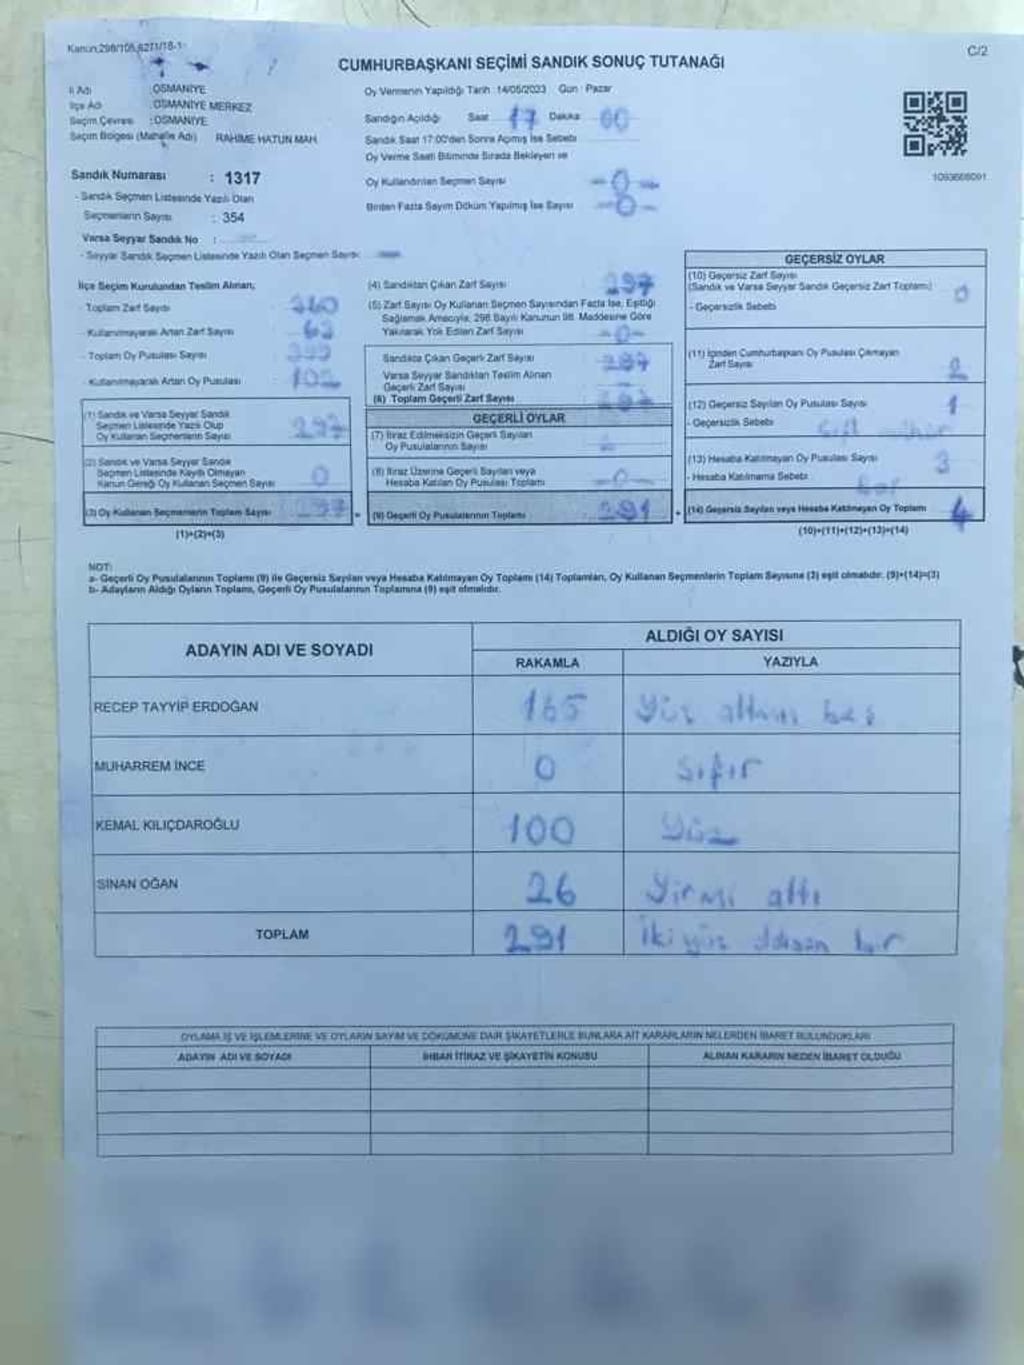 Kanun:298/105,6271/18-1
C/2
CUMHURBAŞKANI SEÇİMİ SANDIK SONUÇ TUTANAĞI
İl Adı : OSMANİYE
İlçe Adı : OSMANİYE MERKEZ
Seçim Çevresi : OSMANİYE
Seçim Bölgesi (Mahalle Adı) RAHİME HATUN MAH.
Sandık Numarası : 1317
- Sandık Seçmen Listesinde Yazılı Olan
Seçmenlerin Sayısı : 354
Varsa Seyyar Sandık No :
- Seyyar Sandık Seçmen Listesinde Yazılı Olan Seçmen Sayısı:
Oy Vermenin Yapıldığı Tarih :14/05/2023 Gün : Pazar
Sandığın Açıldığı Saat 17 Dakika 00
Sandık Saat 17:00'den Sonra Açılmış İse Sebebi
Oy Verme Saati Bitiminde Sırada Bekleyen ve
Oy Kullandırılan Seçmen Sayısı -0-
Birden Fazla Sayım Döküm Yapılmış İse Sayısı -0-
1093668091
İlçe Seçim Kurulundan Teslim Alınan;
Toplam Zarf Sayısı 360
- Kullanılmayarak Artan Zarf Sayısı 63
- Toplam Oy Pusulası Sayısı
- Kullanılmayarak Artan Oy Pusulası 102
(1) Sandık ve Varsa Seyyar Sandık
Seçmen Listesinde Yazılı Olup
Oy Kullanan Seçmenlerin Sayısı 297
(2) Sandık ve Varsa Seyyar Sandık
Seçmen Listesinde Kayıtlı Olmayan
Kanun Gereği Oy Kullanan Seçmen Sayısı 0
(3) Oy Kullanan Seçmenlerin Toplam Sayısı 297
(1)+(2)=(3)
(4) Sandıktan Çıkan Zarf Sayısı 297
(5) Zarf Sayısı Oy Kullanan Seçmen Sayısından Fazla İse, Eşitliği
Sağlamak Amacıyla, 298 Sayılı Kanunun 98. Maddesine Göre
Yakılarak Yok Edilen Zarf Sayısı -0-
Sandıkta Çıkan Geçerli Zarf Sayısı 297
Varsa Seyyar Sandıktan Teslim Alınan
Geçerli Zarf Sayısı
(6) Toplam Geçerli Zarf Sayısı 297
GEÇERLİ OYLAR
(7) İtiraz Edilmeksizin Geçerli Sayılan
Oy Pusulalarının Sayısı
(8) İtiraz Üzerine Geçerli Sayılan veya
Hesaba Katılan Oy Pusulası Toplamı -0-
(9) Geçerli Oy Pusulalarının Toplamı 291
GEÇERSİZ OYLAR
(10) Geçersiz Zarf Sayısı
(Sandık ve Varsa Seyyar Sandık Geçersiz Zarf Toplamı) 0
- Geçersizlik Sebebi
(11) İçinden Cumhurbaşkanı Oy Pusulası Çıkmayan
Zarf Sayısı 2
(12) Geçersiz Sayılan Oy Pusulası Sayısı 1
- Geçersizlik Sebebi
(13) Hesaba Katılmayan Oy Pusulası Sayısı 3
- Hesaba Katılmama Sebebi
(14) Geçersiz Sayılan veya Hesaba Katılmayan Oy Toplamı 4
(10)+(11)+(12)+(13)=(14)
NOT:
a- Geçerli Oy Pusulalarının Toplamı (9) ile Geçersiz Sayılan veya Hesaba Katılmayan Oy Toplamı (14) Toplamları, Oy Kullanan Seçmenlerin Toplam Sayısına (3) eşit olmalıdır. (9)+(14)=(3)
b- Adayların Aldığı Oyların Toplamı, Geçerli Oy Pusulalarının Toplamına (9) eşit olmalıdır.
ADAYIN ADI VE SOYADI
ALDIĞI OY SAYISI
RAKAMLA YAZIYLA
RECEP TAYYİP ERDOĞAN 165 Yüz altmış beş
MUHARREM İNCE 0 Sıfır
KEMAL KILIÇDAROĞLU 100 Yüz
SİNAN OĞAN 26 Yirmi altı
TOPLAM 291 İki yüz doksan bir
OYLAMA İŞ VE İŞLEMLERİNE VE OYLARIN SAYIM VE DÖKÜMÜNE DAİR ŞİKAYETLERLE BUNLARA AİT KARARLARIN NELERDEN İBARET BULUNDUKLARI
ADAYIN ADI VE SOYADI İHBAR İTİRAZ VE ŞİKAYETİN KONUSU ALINAN KARARIN NEDEN İBARET OLDUĞU